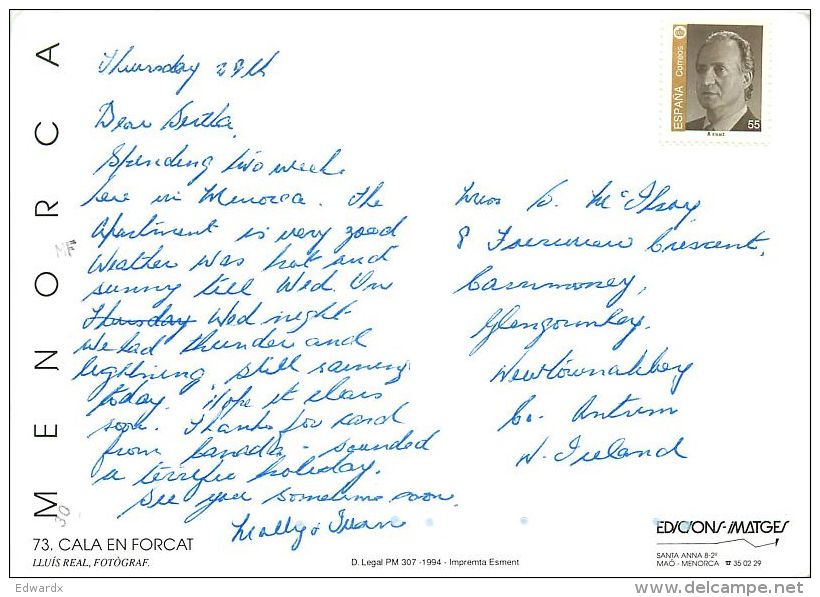 MENORCA
MF
30
Thursday 29th
Dear Bertha,
Spending two week
here in Menorca. The
Apartment is very good
Weather was hot and
sunny till Wed. On
Thursday Wed night
We had thunder and
lightning still raining
today. Hope it clears
soon. Thanks for card
from Canada - sounded
a terrific holiday.
See you sometime soon.
Molly & Ivan
ESPAÑA Correos
55
Miss B. McIlroy
8 Crescent,
Carnmoney,
Glengormley,
Newtownabbey
Co. Antrim
N. Ireland
73. CALA EN FORCAT
LLUÍS REAL, FOTÒGRAF.
D. Legal PM 307 -1994 - Impremta Esment
EDICIONS-IMATGES
SANTA ANNA 8-2º
MAÓ - MENORCA ☎ 35 02 29
Edwardx
delcampe.net